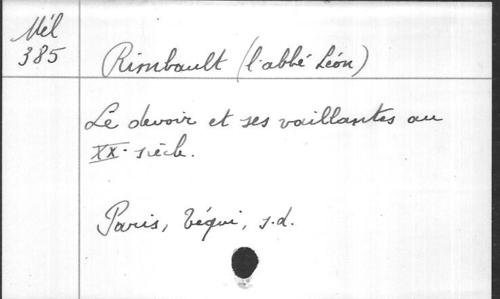 Mél
385
Rimbault (l'abbé Léon)
Le devoir et ses vaillantes au
XX. siècle.
Paris, Téqui, s.d.